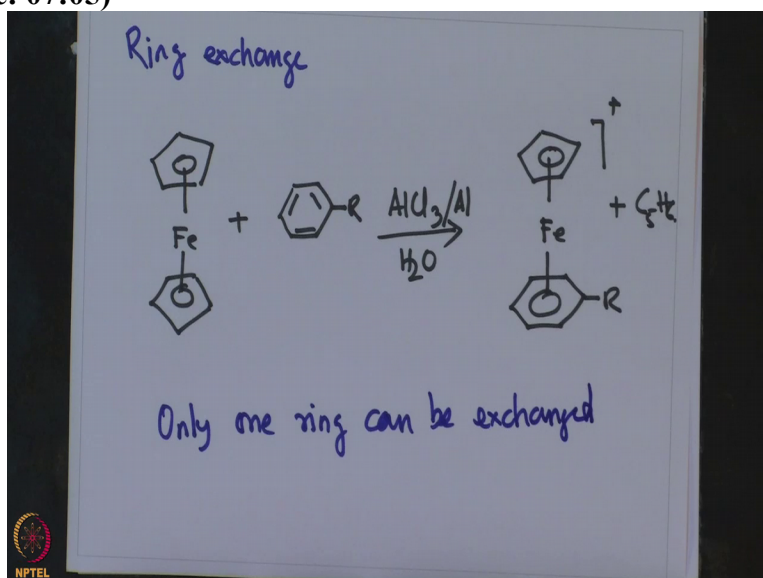 07:05)
Ring exchange
Fe + R AlCl3/Al H2O Fe R ]+ + C5H6
Only one ring can be exchanged
NPTEL